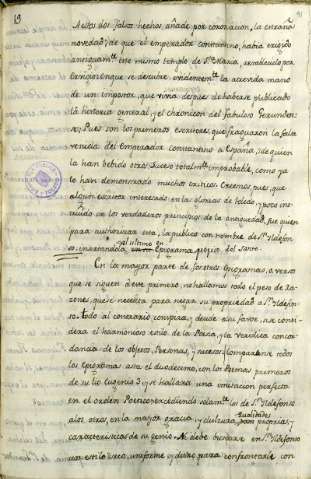 19
A estos dos falsos hechos añade por coronacion, la estraña
novedad, de que el emperador Constantino, habia erigido
antiguamte. este mismo templo de Sta. Maria,
que se descubre evidentemte. la acerada mano
de un impostor, que vivia despues de haberse publicado
la historia general, y el Chronicon del fabuloso
Pues son los primeros escritores que fraguaron la falsa
venida del Emperador Constantino a España, de quien
la han bebido otros. Suceso totalmte. improbable, como ya
lo han demonstrado muchos Creemos, pues, que
algun escritor interesado en las glorias de Toledo, y poco ins-
truido en los verdaderos principios de la antiguedad, fue quien
para authorizar esta, la publicó con nombre de Sn. Ildefon-
so, en el ultimo Epigrama propio del Santo.
En la mayor parte de los otros Epigramas, o versos
que se siguen a este primero, no hallamos todo el peso de Ra-
zones, que se necesita para negar su propiedad a Sn. Ildefon-
so. Todo al contrario conspira, y desde a su favor, si se consi-
dera el harmonioso estilo de la Poesia, y la veridica concor-
dancia de los objetos, Personas, y sucesos. Comparense todos
los Epigramas asta el duodecimo, con los Poemas primeros
de su tio Eugenio 3º, y se hallara una imitacion perfecta
en el orden Poetico excediendo solamte. los de Sn. Ildefonso
a los otros, en la mayor gracia, y dulzura, qualidades proprias, y
caracteristicas de su genio. No debe buscarse en Sn. Ildefonso
un estilo seco, uniforme, y duro para confrontarle con